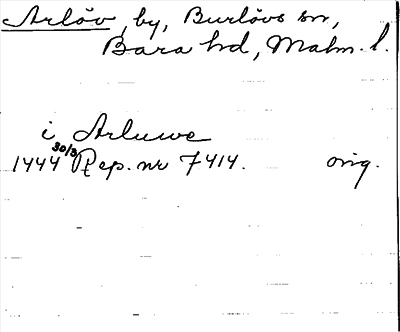 Arlöv, by, Burlövs sn,
Bara hd, Malm. l.
i Arluwe
1444 30/3 Rep. nr 7414. orig.